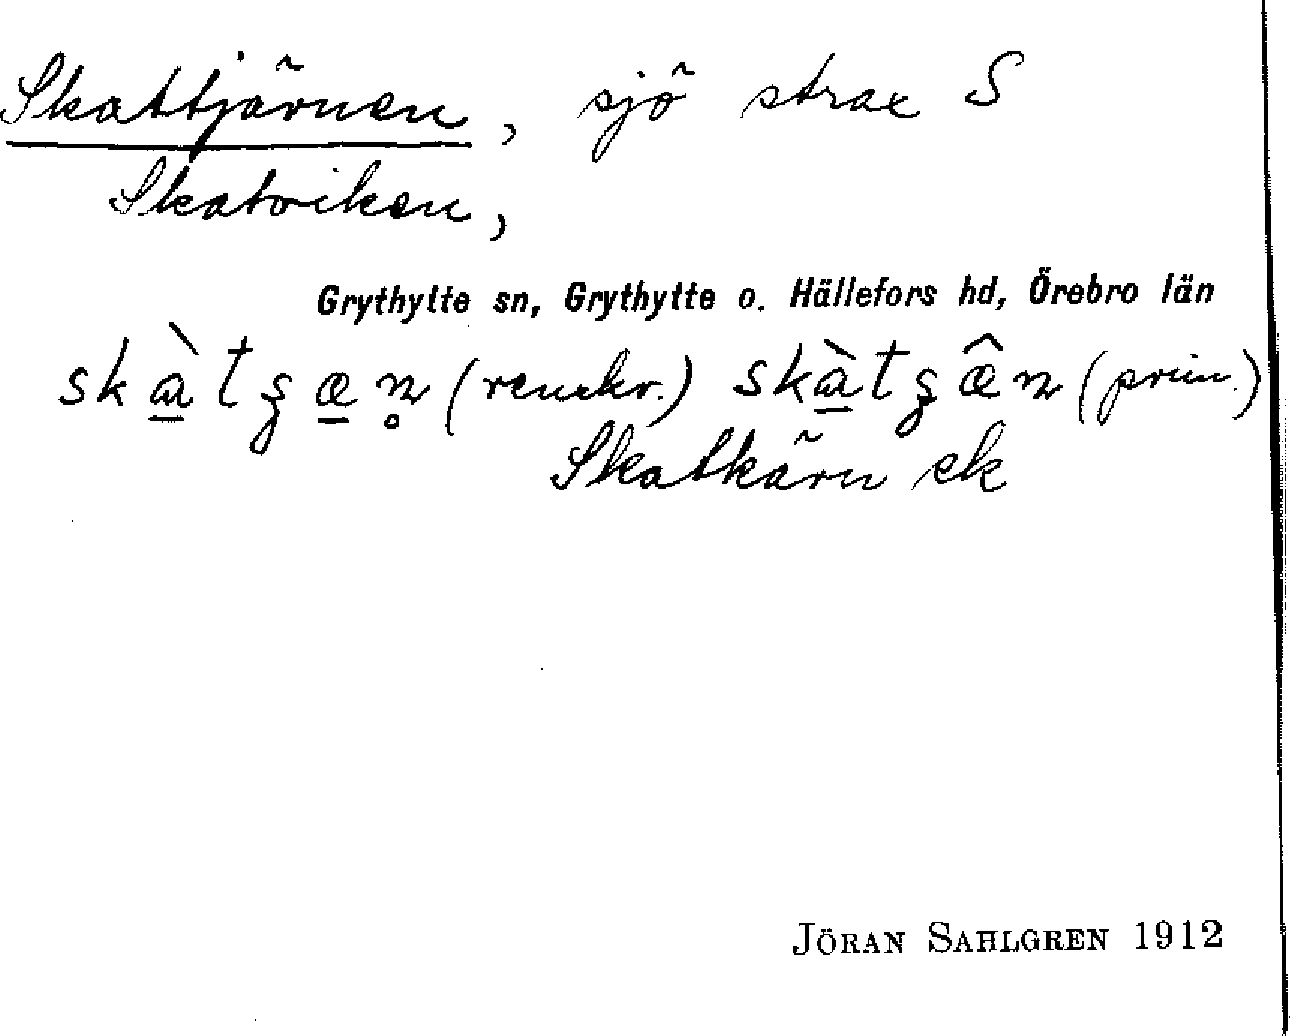 Skattjärnen, sjö strax S
Skatviken,
Grythytte sn, Grythytte o. Hällefors hd, Örebro län
skàtʂæn̥ (renskr.) skàtʂæ̂n (prim.)
Skatkärn ek
JÖRAN SAHLGREN 1912